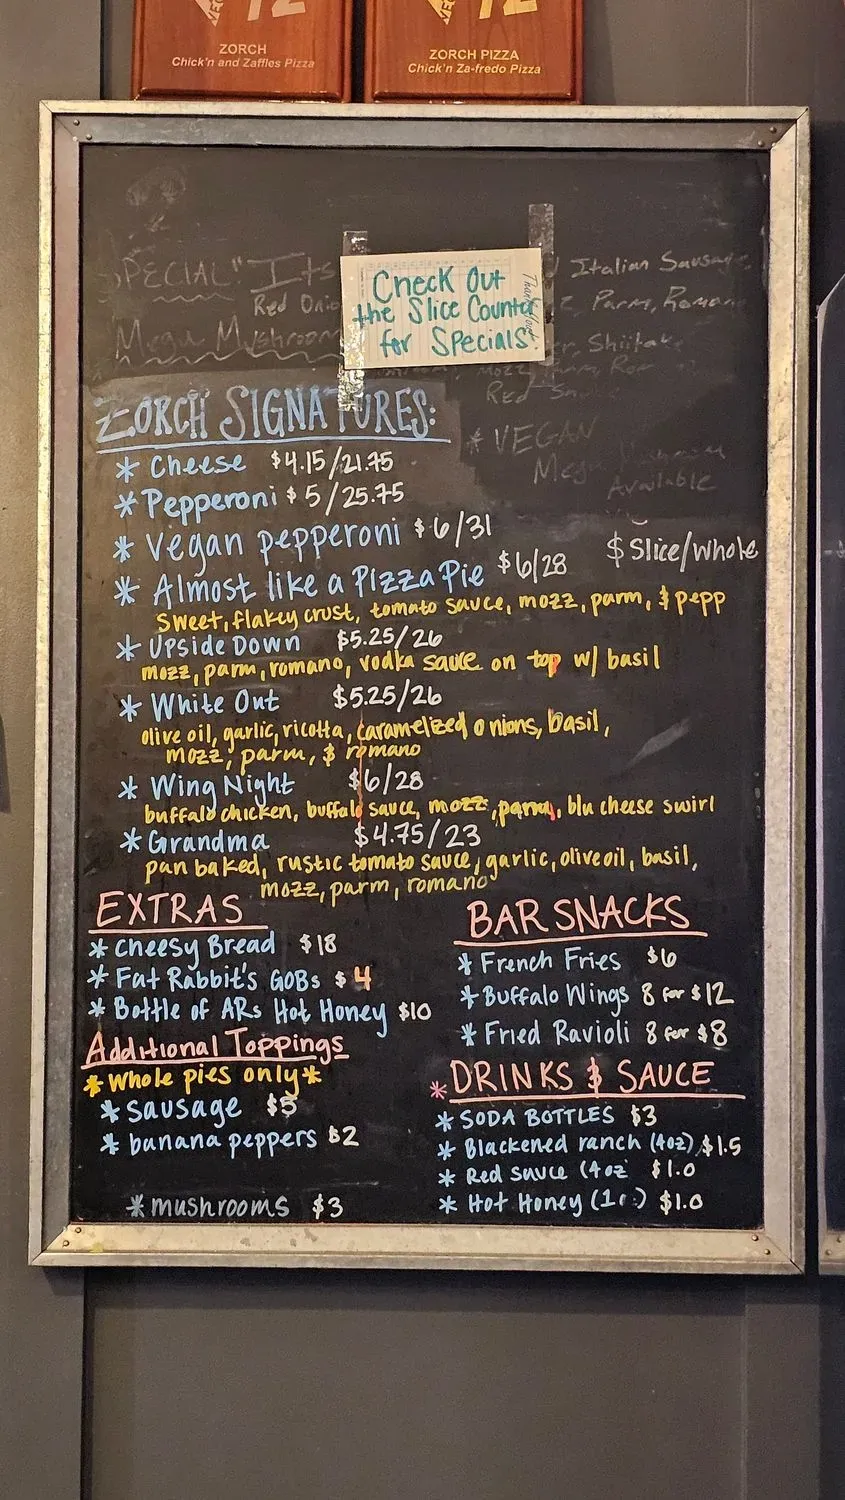 ZORCH
Chick'n and Zaffles Pizza
ZORCH PIZZA
Chick'n Za-fredo Pizza
SPECIAL" Its
Italian Sausage
Red Onio
Parm, Romano
Mega Mushroom
Shiitake
Mozz
Red
Check Out
the Slice Counter
for Specials!
Thank you!
* VEGAN
Mega Mushroom
Available
ZORCH SIGNATURES:
* Cheese $4.15/21.75
* Pepperoni $5/25.75
* Vegan pepperoni $6/31
$ Slice/whole
* Almost like a Pizza Pie $6/28
Sweet, flakey crust, tomato sauce, mozz, parm, & pepp
* Upside Down $5.25/26
mozz, parm, romano, vodka sauce on top w/ basil
* White Out $5.25/26
olive oil, garlic, ricotta, caramelized onions, basil,
mozz, parm, & romano
* Wing Night $6/28
buffalo chicken, buffalo sauce, mozz, parm, blu cheese swirl
* Grandma $4.75/23
pan baked, rustic tomato sauce, garlic, olive oil, basil,
mozz, parm, romano
EXTRAS
* Cheesy Bread $18
* Fat Rabbit's GOBs $4
* Bottle of ARs Hot Honey $10
Additional Toppings
*Whole pies only*
* sausage $5
* banana peppers $2
* mushrooms $3
BAR SNACKS
* French Fries $6
* Buffalo Wings 8 for $12
* Fried Ravioli 8 for $8
* DRINKS & SAUCE
* SODA BOTTLES $3
* Blackened ranch (4oz) $1.5
* Red sauce (4oz $1.0
* Hot Honey $1.0